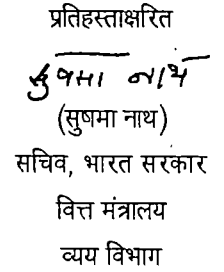 प्रतिहस्ताक्षरित
सुषमा नाथ
(सुषमा नाथ)
सचिव, भारत सरकार
वित्त मंत्रालय
व्यय विभाग